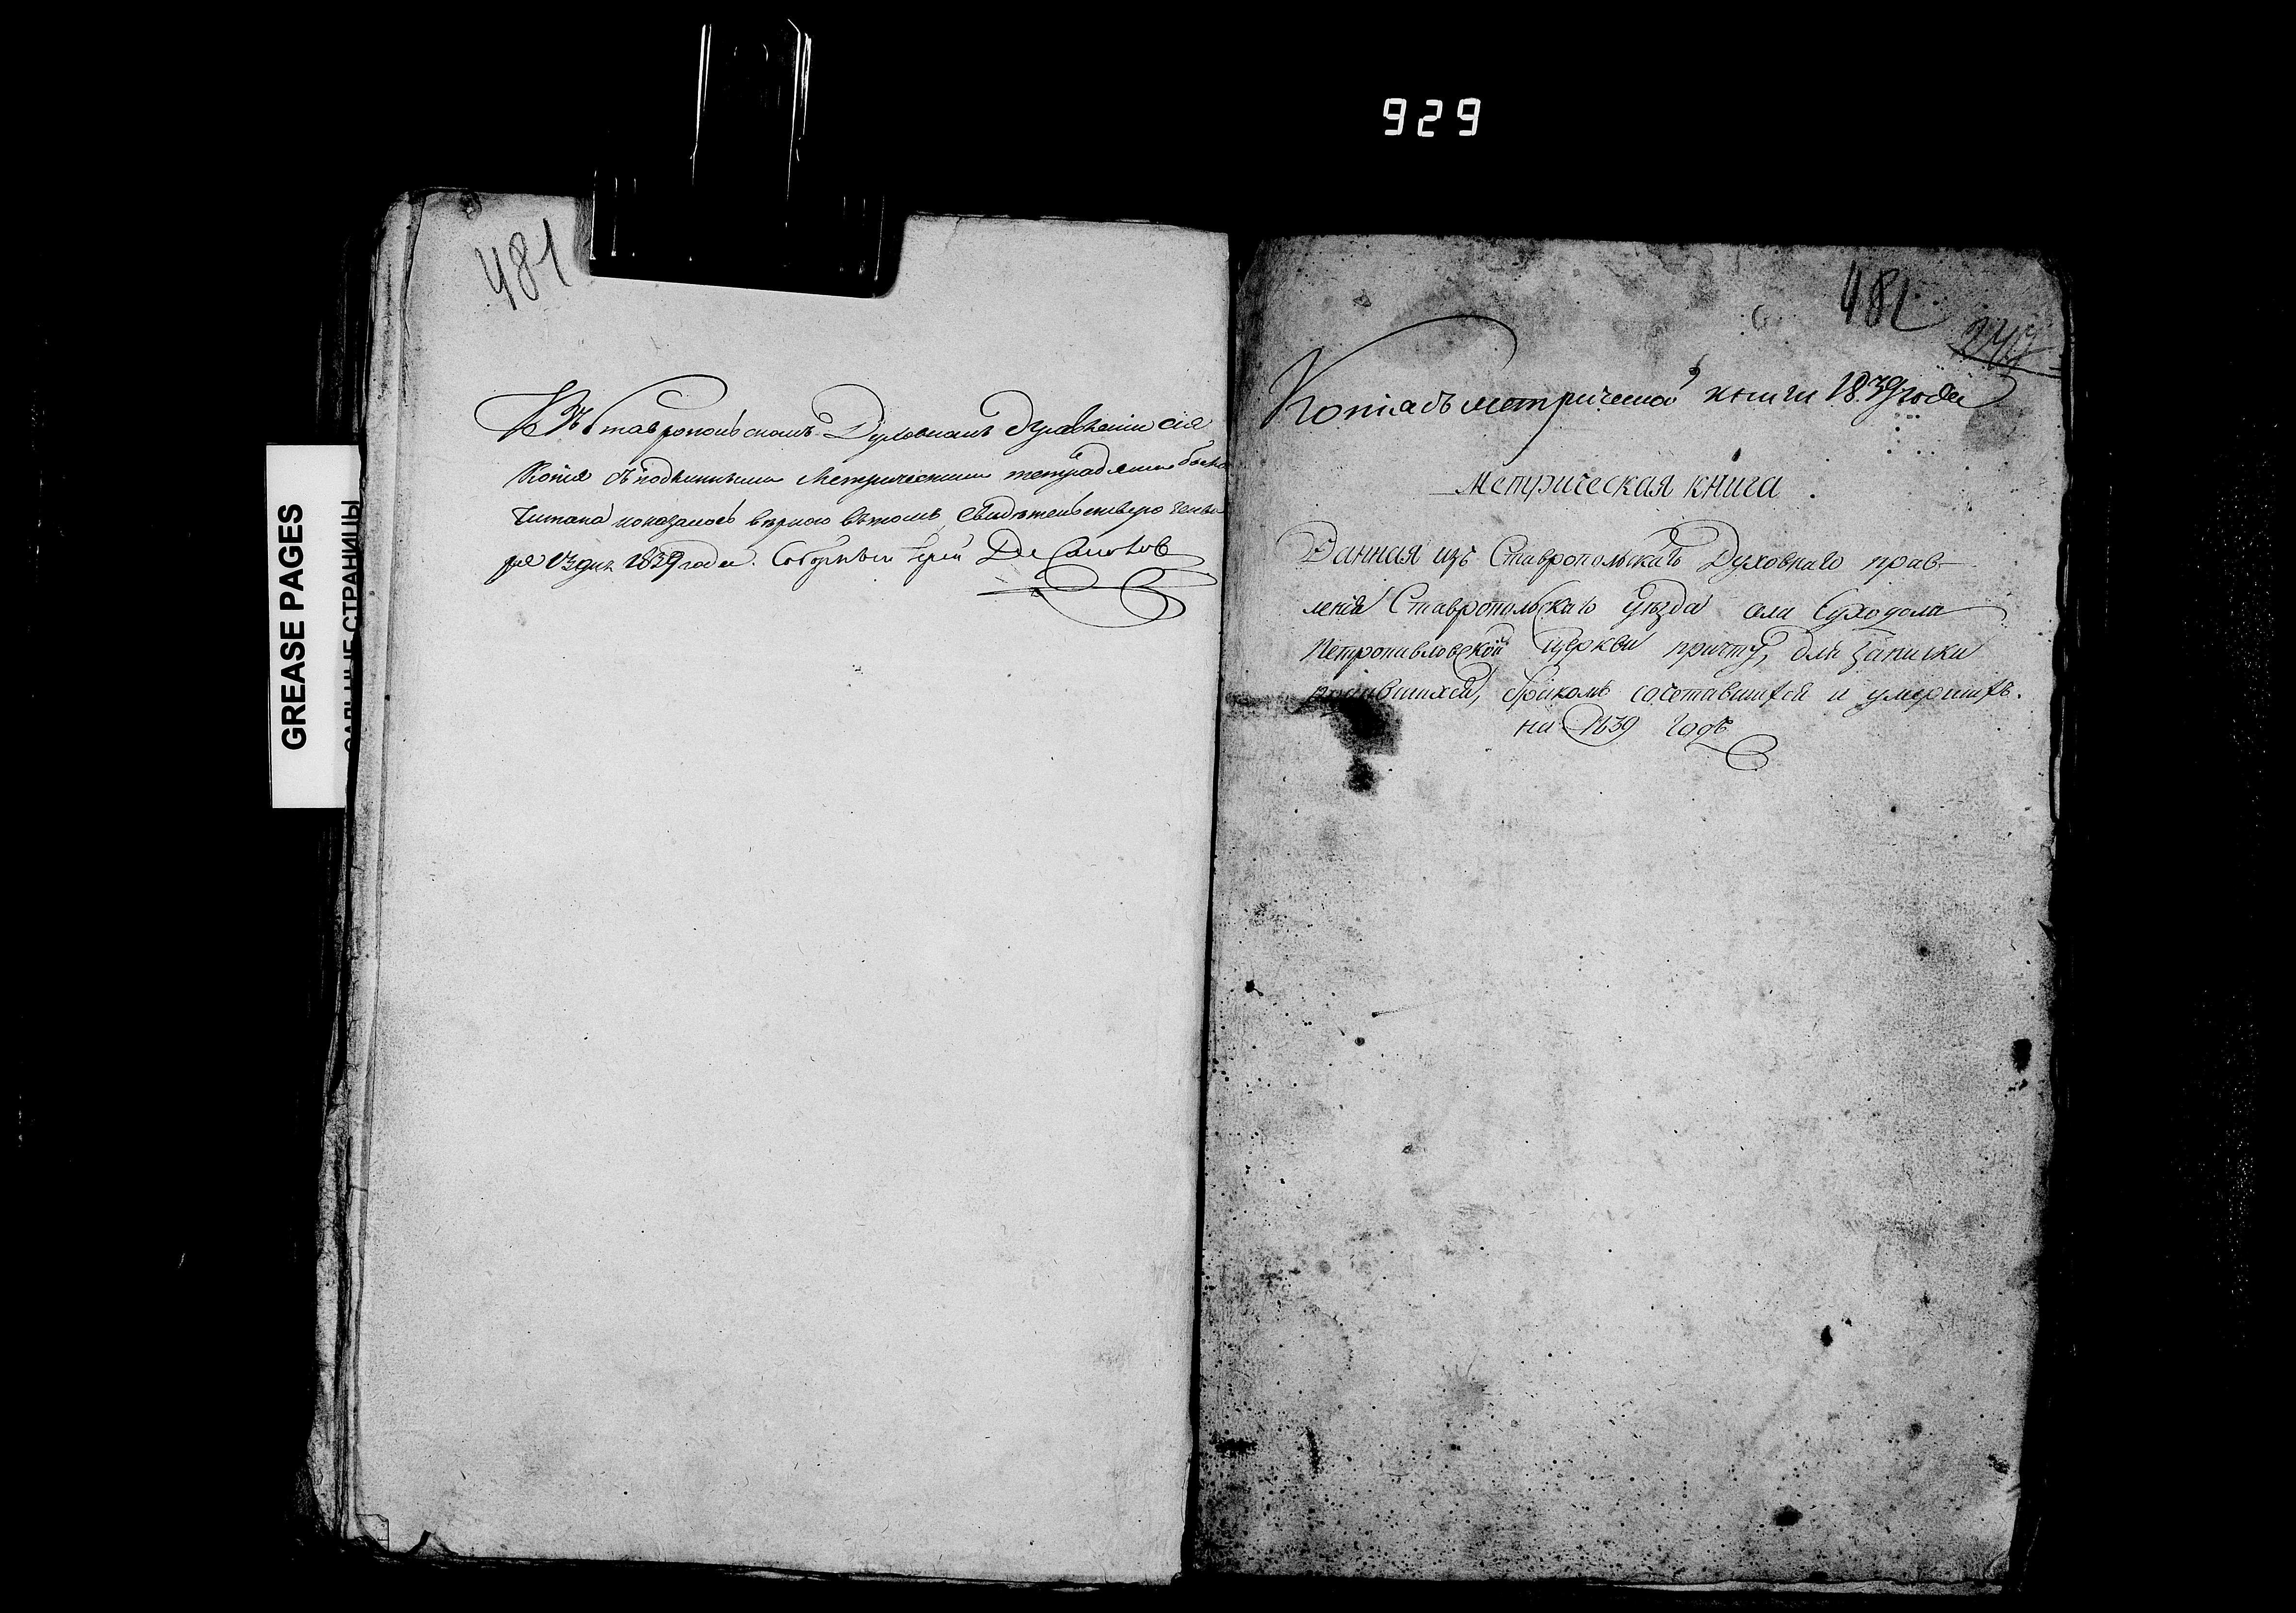 929
GREASE PAGES
САЛЬНЫЕ СТРАНИЦЫ
481
Въ Ставропольскомъ Духовномъ Правленіи сія
Копія съ подлинными Метрическими тетрадями была
читана и оказалась верною въ томъ свидетельствую генва
ря 13 дня 1839 года. Соборный Іерей
482
Копія съ метрической книги 1839 года
Метрическая книга.
Данная изъ Ставропольскаго Духовнаго прав-
ленія Ставропольскаго уѣзда села Суходола
Петропавловской церкви причту, для записки
родившихся, бракомъ сочетавшихся и умершихъ.
на 1839 годъ